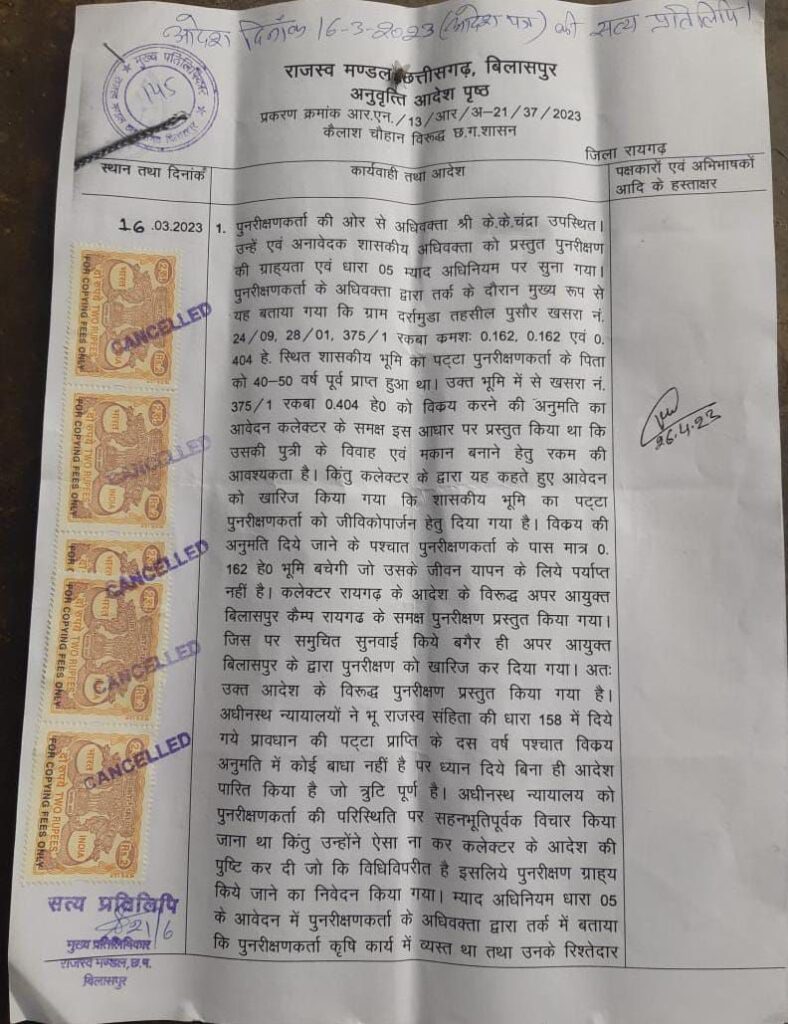 आदेश दिनाँक 16-3-2023 (आदेश पत्र) की सत्य प्रतिलिपि।
मुख्य प्रतिलिपिकार
145
राजस्व मण्डल छत्तीसगढ़, बिलासपुर
अनुवृत्ति आदेश पृष्ठ
प्रकरण क्रमांक आर.एन./13/आर/अ-21/37/2023
कैलाश चौहान विरूद्ध छ.ग.शासन
जिला रायगढ़
स्थान तथा दिनांक
कार्यवाही तथा आदेश
पक्षकारों एवं अभिभाषकों
आदि के हस्ताक्षर
16.03.2023
1. पुनरीक्षणकर्ता की ओर से अधिवक्ता श्री के.के.चंद्रा उपस्थित।
उन्हें एवं अनावेदक शासकीय अधिवक्ता को प्रस्तुत पुनरीक्षण
की ग्राह्यता एवं धारा 05 म्याद अधिनियम पर सुना गया।
पुनरीक्षणकर्ता के अधिवक्ता द्वारा तर्क के दौरान मुख्य रूप से
यह बताया गया कि ग्राम दर्रामुडा तहसील पुसौर खसरा नं.
24/09, 28/01, 375/1 रकबा कमशः 0.162, 0.162 एवं 0.
404 हे. स्थित शासकीय भूमि का पट्टा पुनरीक्षणकर्ता के पिता
को 40-50 वर्ष पूर्व प्राप्त हुआ था। उक्त भूमि में से खसरा नं.
375/1 रकबा 0.404 हे0 को विकय करने की अनुमति का
आवेदन कलेक्टर के समक्ष इस आधार पर प्रस्तुत किया था कि
उसकी पुत्री के विवाह एवं मकान बनाने हेतु रकम की
आवश्यकता है। किंतु कलेक्टर के द्वारा यह कहते हुए आवेदन
को खारिज किया गया कि शासकीय भूमि का पट्टा
पुनरीक्षणकर्ता को जीविकोपार्जन हेतु दिया गया है। विकय की
अनुमति दिये जाने के पश्चात पुनरीक्षणकर्ता के पास मात्र 0.
162 हे0 भूमि बचेगी जो उसके जीवन यापन के लिये पर्याप्त
नहीं है। कलेक्टर रायगढ़ के आदेश के विरूद्ध अपर आयुक्त
बिलासपुर कैम्प रायगढ के समक्ष पुनरीक्षण प्रस्तुत किया गया।
जिस पर समुचित सुनवाई किये बगैर ही अपर आयुक्त
बिलासपुर के द्वारा पुनरीक्षण को खारिज कर दिया गया। अतः
उक्त आदेश के विरूद्ध पुनरीक्षण प्रस्तुत किया गया है।
अधीनस्थ न्यायालयों ने भू राजस्व संहिता की धारा 158 में दिये
गये प्रावधान की पट्टा प्राप्ति के दस वर्ष पश्चात विकय
अनुमति में कोई बाधा नहीं है पर ध्यान दिये बिना ही आदेश
पारित किया है जो त्रुटि पूर्ण है। अधीनस्थ न्यायालय को
पुनरीक्षणकर्ता की परिस्थिति पर सहनभूतिपूर्वक विचार किया
जाना था किंतु उन्होंने ऐसा ना कर कलेक्टर के आदेश की
पुष्टि कर दी जो कि विधिविपरीत है इसलिये पुनरीक्षण ग्राह्य
किये जाने का निवेदन किया गया। म्याद अधिनियम धारा 05
के आवेदन में पुनरीक्षणकर्ता के अधिवक्ता द्वारा तर्क में बताया
कि पुनरीक्षणकर्ता कृषि कार्य में व्यस्त था तथा उनके रिश्तेदार
26.4.23
भारत
दो रुपये TWO RUPEES
INDIA
FOR COPYING FEES ONLY
CANCELLED
भारत
दो रुपये TWO RUPEES
INDIA
FOR COPYING FEES ONLY
CANCELLED
CANCELLED
भारत
दो रुपये TWO RUPEES
FOR COPYING FEES ONLY
CANCELLED
भारत
दो रुपये TWO RUPEES
INDIA
FOR COPYING FEES ONLY
CANCELLED
सत्य प्रतिलिपि
21/6
मुख्य प्रतिलिपिकार
राजस्व मण्डल, छ.ग.
बिलासपुर